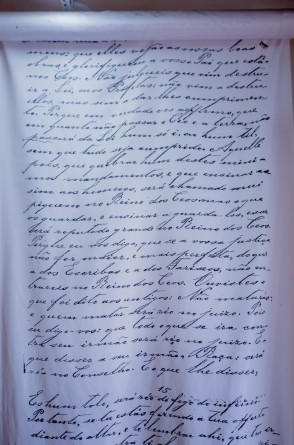 mens: que elles vejão as vossas boas
obras, e glorifiquem a vosso Pai que está
nos Ceos. Não julgueis que vim destru-
ir a Lei, ou os Profetas: não vim a destru-
ilos, mas sim a dar-lhes cumprimen-
to. Porque em verdade vos affirmo, que
em quanto não passar o Ceo e a terra, não
passará da Lei hum só i, ou hum til,
sem que tudo seja cumprido. Aquelle
pois, que quebrar hum destes mini-
mos mandamentos, e que ensinar as-
sim aos homens, será chamado mui
pequeno no Reino dos Ceos: mas o que
os guardar, e ensinar a guardalos, esse
será reputado grande no Reino dos Ceos.
Porque eu vos digo, que se a vossa justiça
não for maior, e mais perfeita, do que
a dos Escribas e a dos Fariseos, não en-
trareis no Reino dos Ceos. Ouvistes o
que foi dito aos antigos: Não matarás:
e quem matar será réo no juizo. Pois
eu digo-vos: que todo o que se ira con-
tra seu irmão será réo no juizo. E o
que disser a seu irmão, Raca: será
réo no Conselho. E o que lhe disser,
15
És hum tolo, será réo do fogo do inferno.
Portanto, se tu estás fazendo a tua offerta
diante do altar, e te lembrar ahi, que teu ir-